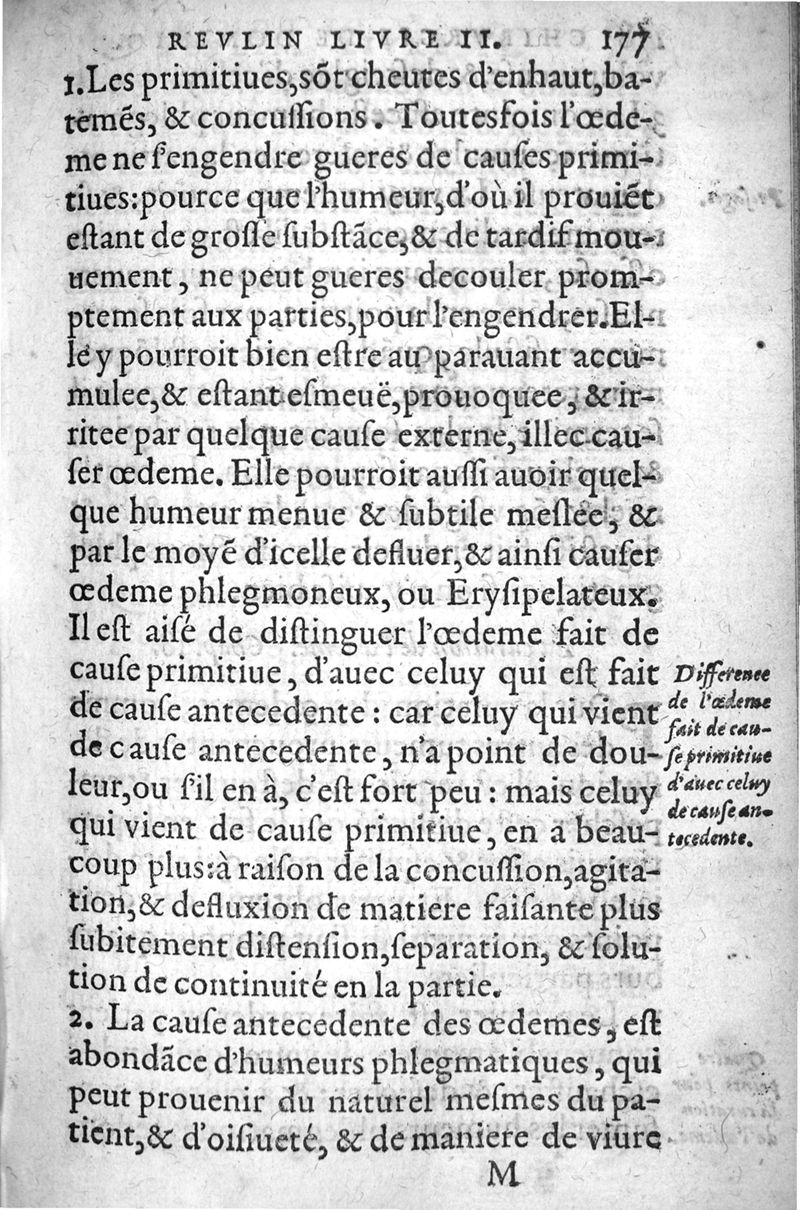 REVLIN LIVRE II. 177
1.Les primitiues,sõt cheutes d'enhaut,ba-
temẽs, & concuſſions. Toutesfois l'œde-
me ne ſ'engendre gueres de cauſes primi-
tiues:pource que l'humeur,d'où il prouiẽt
eſtant de groſſe ſubſtãce,& de tardif mou-
uement, ne peut gueres decouler prom-
ptement aux parties,pour l'engendrer.El-
le y pourroit bien eſtre au parauant accu-
mulee,& eſtant eſmeuë,prouoquee, & ir-
ritee par quelque cauſe externe, illec cau-
ſer œdeme. Elle pourroit auſſi auoir quel-
que humeur menue & ſubtile meſlée, &
par le moyẽ d'icelle defluer,& ainſi cauſer
œdeme phlegmoneux, ou Eryſipelateux.
Il eſt aiſé de diſtinguer l'œdeme fait de
cauſe primitiue, d'auec celuy qui eſt fait
de cauſe antecedente : car celuy qui vient
de cauſe antecedente, n'a point de dou-
leur,ou ſ'il en à, c'eſt fort peu : mais celuy
qui vient de cauſe primitiue, en a beau-
coup plus:à raiſon de la concuſſion,agita-
tion,& defluxion de matiere faiſante plus
ſubitement diſtenſion,ſeparation, & ſolu-
tion de continuité en la partie.
2. La cauſe antecedente des œdemes, eſt
abondãce d'humeurs phlegmatiques, qui
peut prouenir du naturel meſmes du pa-
tient,& d'oiſiueté, & de maniere de viure
M
Difference
de l'œdeme
fait de cau-
ſe primitiue
d'auec celuy
de cauſe an-
tecedente.